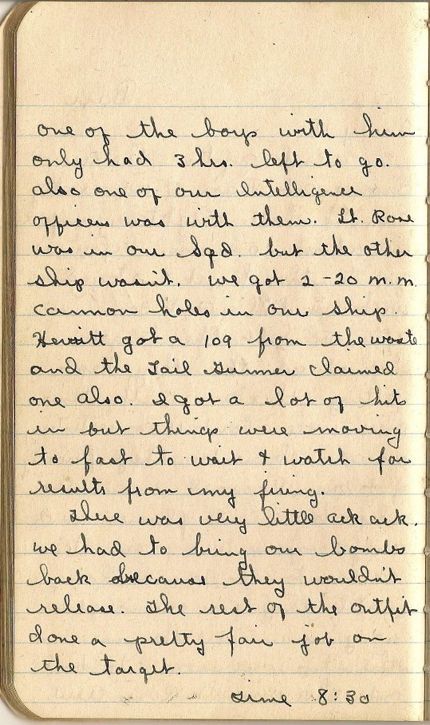 one of the boys with him
only had 3 hrs. left to go.
also one of our Intelligence
officers was with them. Lt. Rose
was in our Sqd. but the other
ship wasnt. we got 2-20 m.m.
cannon holes in our ship.
Hewitt got a 109 from the waste
and the Tail Gunner claimed
one also. I got a lot of hits
in but things were moving
to fast to wait & watch for
results from my firing.
There was very little ack ack.
we had to bring our bombs
back because they wouldn't
release. The rest of the outfit
done a pretty fair job on
the target.
Time 8:30